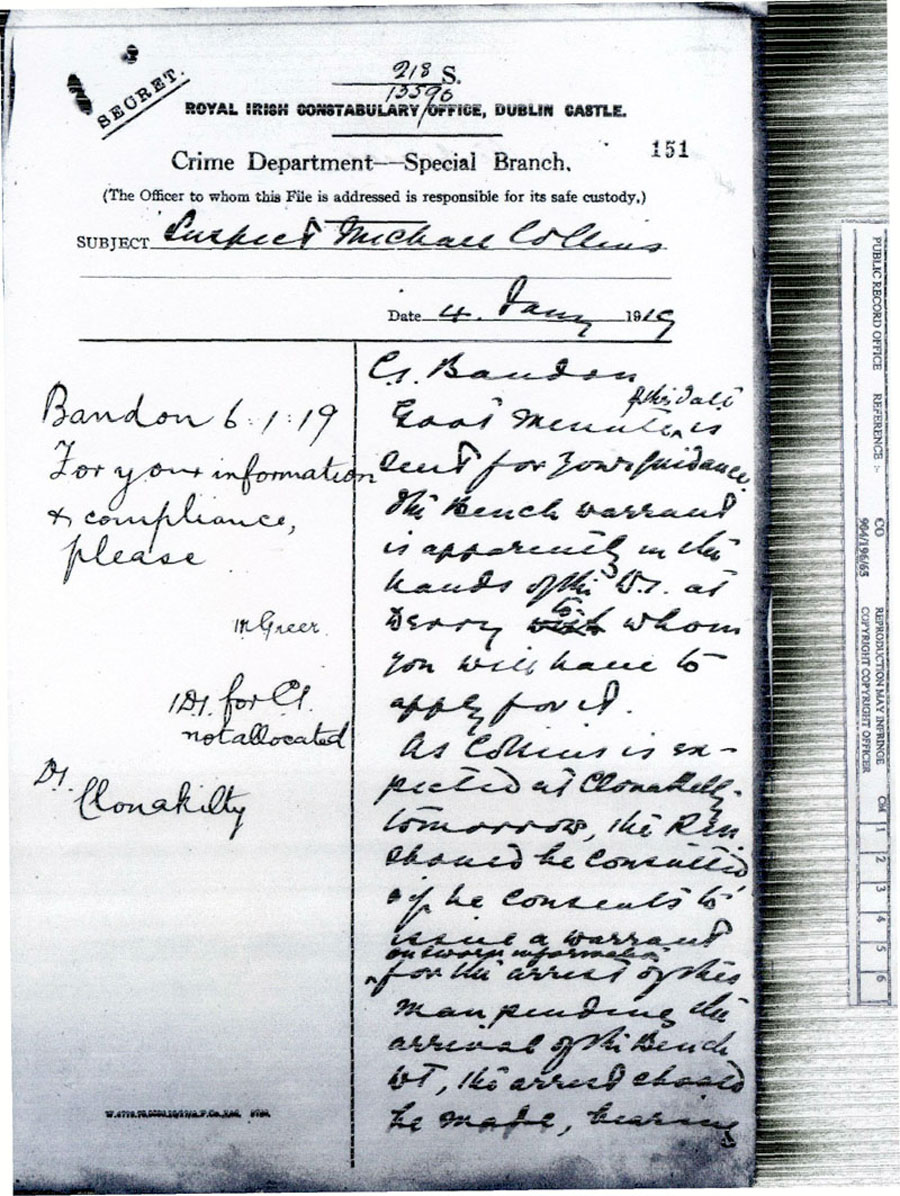 SECRET.
218 S.
13590
ROYAL IRISH CONSTABULARY OFFICE, DUBLIN CASTLE.
151
Crime Department—Special Branch.
(The Officer to whom this File is addressed is responsible for its safe custody.)
SUBJECT Suspect Michael Collins
Date 4. Jany 1919
Bandon 6:1:19
For your information
& compliance,
please
M Greer.
DI. for CI.
not allocated
DI.
Clonakilty
CI. Bandon
of this date
Govt Minute is
sent for your guidance.
The Bench warrant
is apparently in the
hands of the D.I. at
to
Derry with whom
you will have to
apply for it.
As Collins is ex-
pected at Clonakilty
tomorrow, the R.M.
should be consulted
& if he consents to
issue a warrant
on sworn information
for the arrest of this
man pending the
arrival of the Bench
WT, the arrest should
be made, bearing
PUBLIC RECORD OFFICE REFERENCE :-
CO
904/196/65
REPRODUCTION MAY INFRINGE
COPYRIGHT COPYRIGHT OFFICER
CM 1 2 3 4 5 6